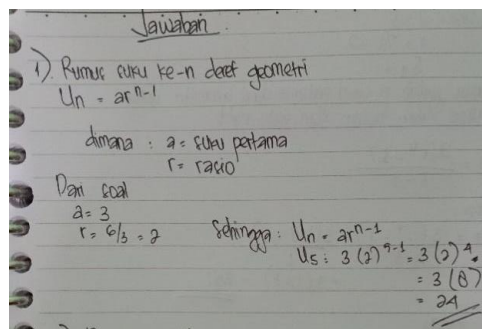 Jawaban.
1) Rumus suku ke-n deret geometri
Un = ar^n-1
dimana : a = suku pertama
r = rasio
Dari soal
a = 3
r = 6/3 = 2
Sehingga : Un = ar^n-1
U5 : 3 (2)^4-1 = 3 (2)^4.
= 3 (8)
= 24